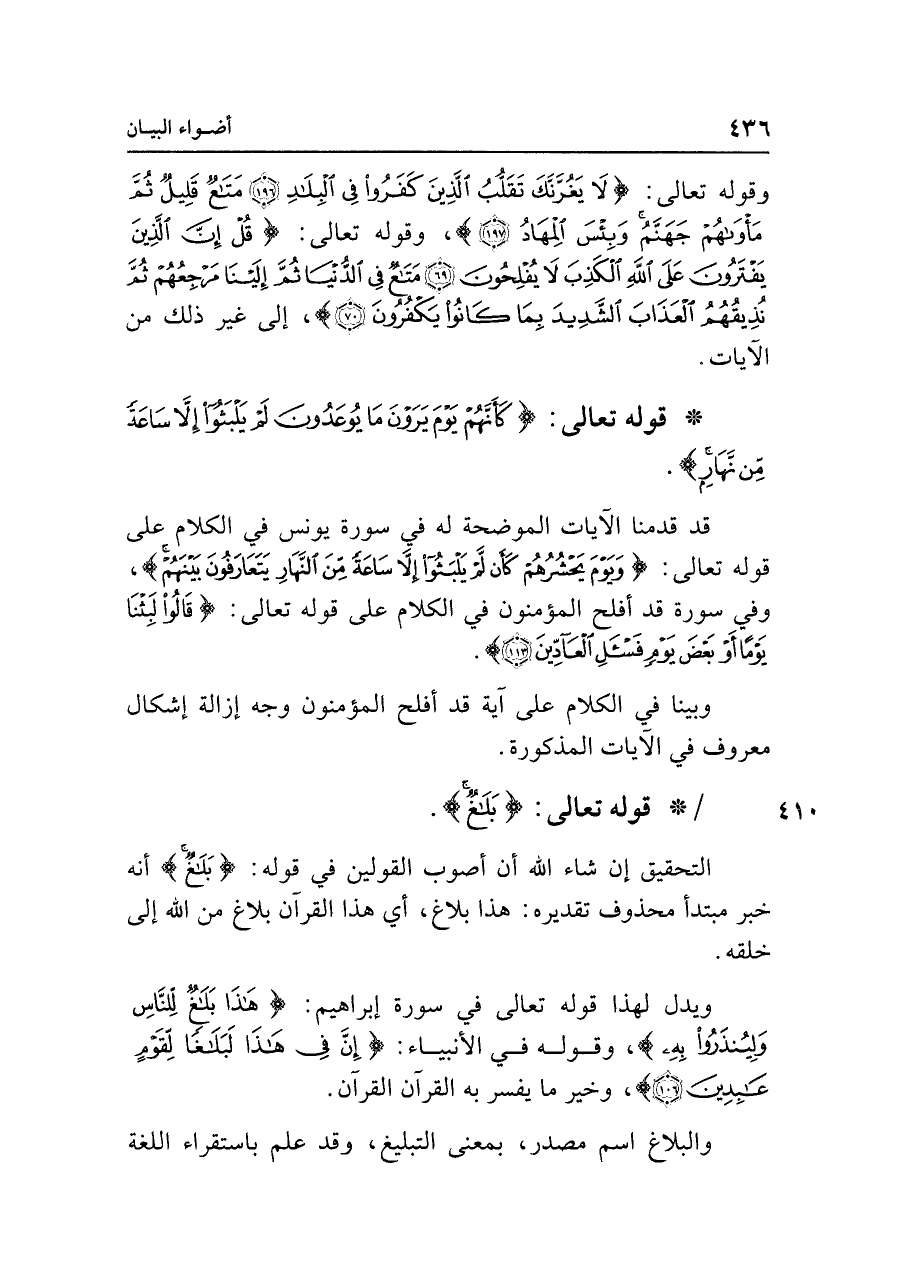 ٤٣٦ أضواء البيان
وقوله تعالى: ﴿ لَا يَغُرَّنَّكَ تَقَلُّبُ ٱلَّذِينَ كَفَرُوا۟ فِى ٱلْبِلَـٰدِ ١٩٦ مَتَـٰعٌ قَلِيلٌ ثُمَّ
مَأْوَىٰهُمْ جَهَنَّمُ ۚ وَبِئْسَ ٱلْمِهَادُ ١٩٧ ﴾، وقوله تعالى: ﴿ قُلْ إِنَّ ٱلَّذِينَ
يَفْتَرُونَ عَلَى ٱللَّهِ ٱلْكَذِبَ لَا يُفْلِحُونَ ٦٩ مَتَـٰعٌ فِى ٱلدُّنْيَا ثُمَّ إِلَيْنَا مَرْجِعُهُمْ ثُمَّ
نُذِيقُهُمُ ٱلْعَذَابَ ٱلشَّدِيدَ بِمَا كَانُوا۟ يَكْفُرُونَ ٧٠ ﴾، إلى غير ذلك من
الآيات.
* قوله تعالى: ﴿ كَأَنَّهُمْ يَوْمَ يَرَوْنَ مَا يُوعَدُونَ لَمْ يَلْبَثُوٓا۟ إِلَّا سَاعَةً
مِّن نَّهَارٍۭ ۚ ﴾.
قد قدمنا الآيات الموضحة له في سورة يونس في الكلام على
قوله تعالى: ﴿ وَيَوْمَ يَحْشُرُهُمْ كَأَن لَّمْ يَلْبَثُوٓا۟ إِلَّا سَاعَةً مِّنَ ٱلنَّهَارِ يَتَعَارَفُونَ بَيْنَهُمْ ۚ ﴾،
وفي سورة قد أفلح المؤمنون في الكلام على قوله تعالى: ﴿ قَالُوا۟ لَبِثْنَا
يَوْمًا أَوْ بَعْضَ يَوْمٍ فَسْـَٔلِ ٱلْعَآدِّينَ ١١٣ ﴾.
وبينا في الكلام على آية قد أفلح المؤمنون وجه إزالة إشكال
معروف في الآيات المذكورة.
٤١٠ / * قوله تعالى: ﴿ بَلَـٰغٌ ۚ ﴾.
التحقيق إن شاء الله أن أصوب القولين في قوله: ﴿ بَلَـٰغٌ ۚ ﴾ أنه
خبر مبتدأ محذوف تقديره: هذا بلاغ، أي هذا القرآن بلاغ من الله إلى
خلقه.
ويدل لهذا قوله تعالى في سورة إبراهيم: ﴿ هَـٰذَا بَلَـٰغٌ لِّلنَّاسِ
وَلِيُنذَرُوا۟ بِهِۦ ﴾، وقوله في الأنبياء: ﴿ إِنَّ فِى هَـٰذَا لَبَلَـٰغًا لِّقَوْمٍ
عَـٰبِدِينَ ١٠٦ ﴾، وخير ما يفسر به القرآن القرآن.
والبلاغ اسم مصدر، بمعنى التبليغ، وقد علم باستقراء اللغة